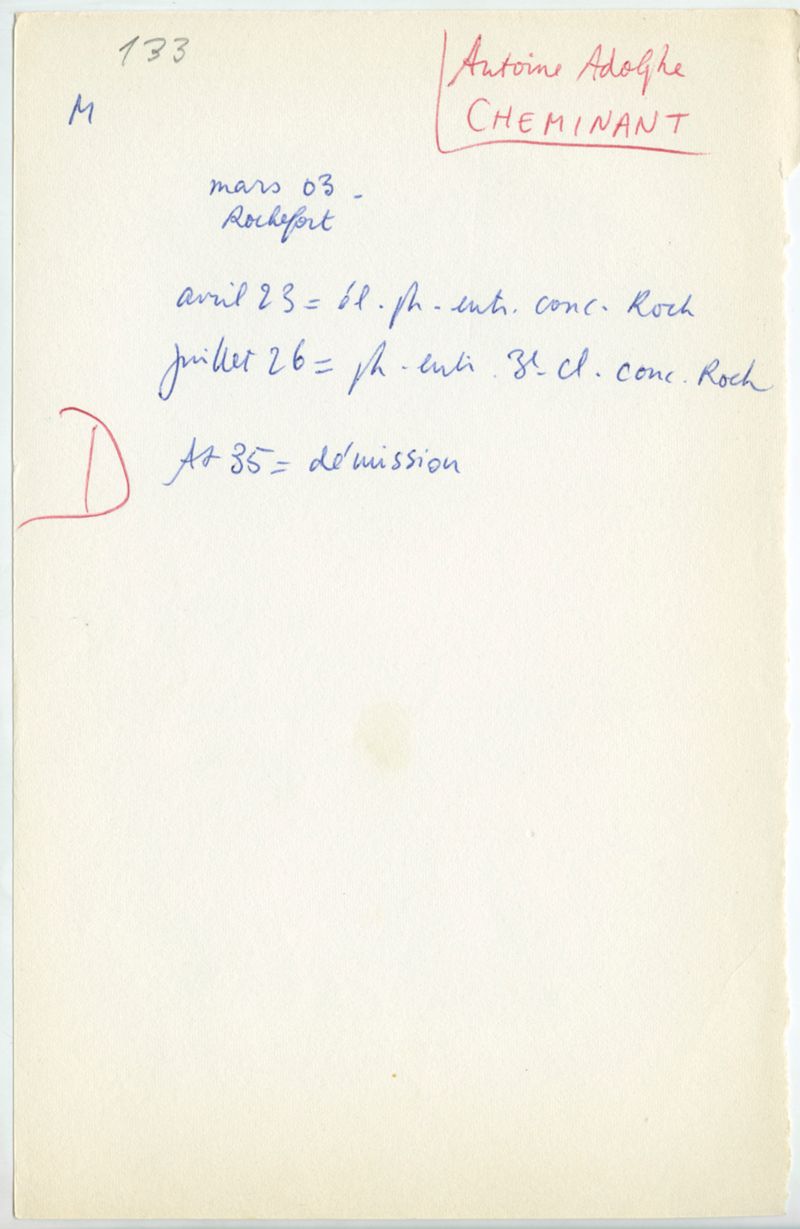 133
Antoine Adolphe
CHEMINANT
M
mars 03 -
Rochefort
avril 23 = él. ph. entr. conc. Roch
juillet 26 = ph. entr. 3e cl. conc. Roch
D
At 35 = démission